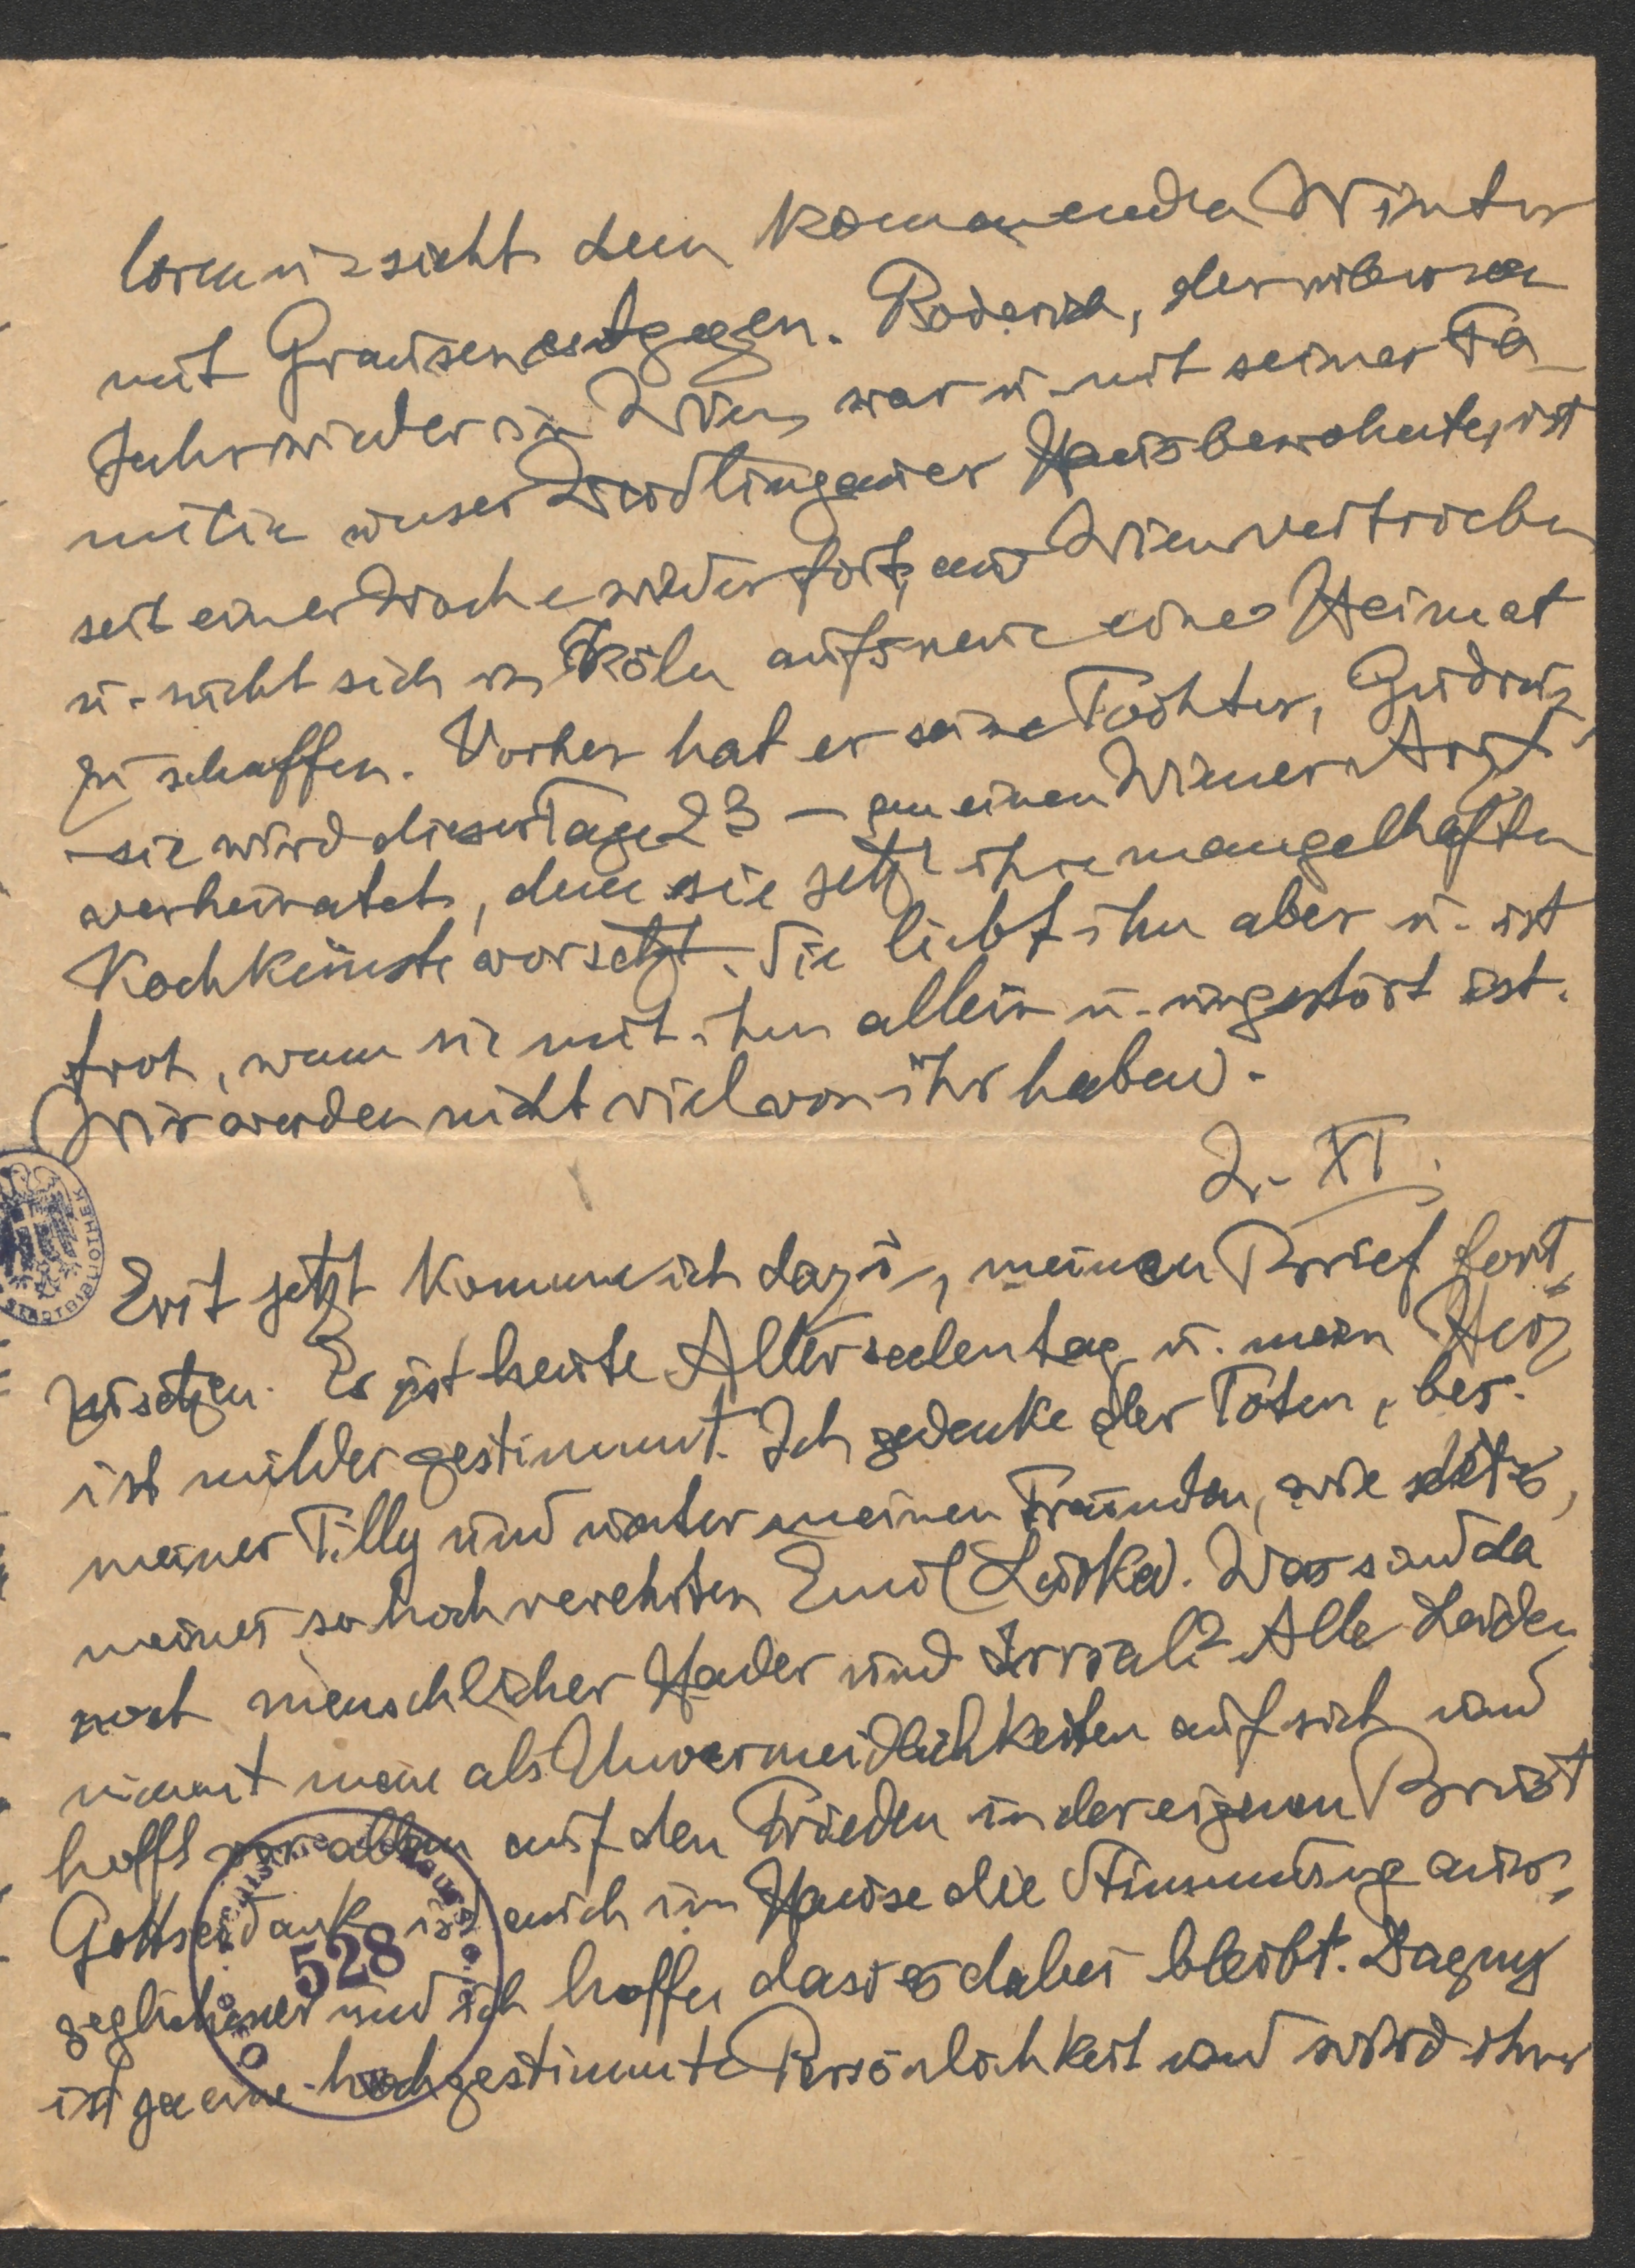 loren u. sieht dem kommenden Winter
mit Grausen entgegen. Roderich, der sieben
Jahr wieder in Wien war u. mit seiner Fa-
milie unser Weidlingauer Haus bewohnte, ist
seit einer Woche wieder fort, aus Wien vertrieben
u. sucht sich in Köln aufs neue eine Heimat
zu schaffen. Vorher hat er seine Tochter, Gudrun
- sie wird dieser Tage 23 - an einen Wiener Arzt
verheiratet, dem sie jetzt ihre mangelhaften
Kochkünste vorsetzt. Sie liebt ihn aber u. ist
froh, wenn sie mit ihm allein u. ungestört ist.
Wir werden nicht viel von ihr haben.
2. XI.
Erst jetzt komme ich dazu, meinen Brief fort
zusetzen. Es ist heute Allerseelentag u. mein Herz
ist milder gestimmt. Ich gedenke der Toten, bes.
meiner Tilly und unter meinen Freunden, wie stets,
meines so hoch verehrten Emil Lucka. Was sind da
noch menschlicher Hader und Irrsal? Alle Leiden
nimmt man als Unvermeidlichkeiten auf sich und
hofft vor allem auf den Frieden in der eigenen Brust
Gottseidank ist auch im Hause die Stimmung aus-
geglichener und ich hoffe, dass es dabei bleibt. Dagny
ist ja eine hochgestimmte Persönlichkeit und wird ihrer
STADTBIBLIOTHEK
528